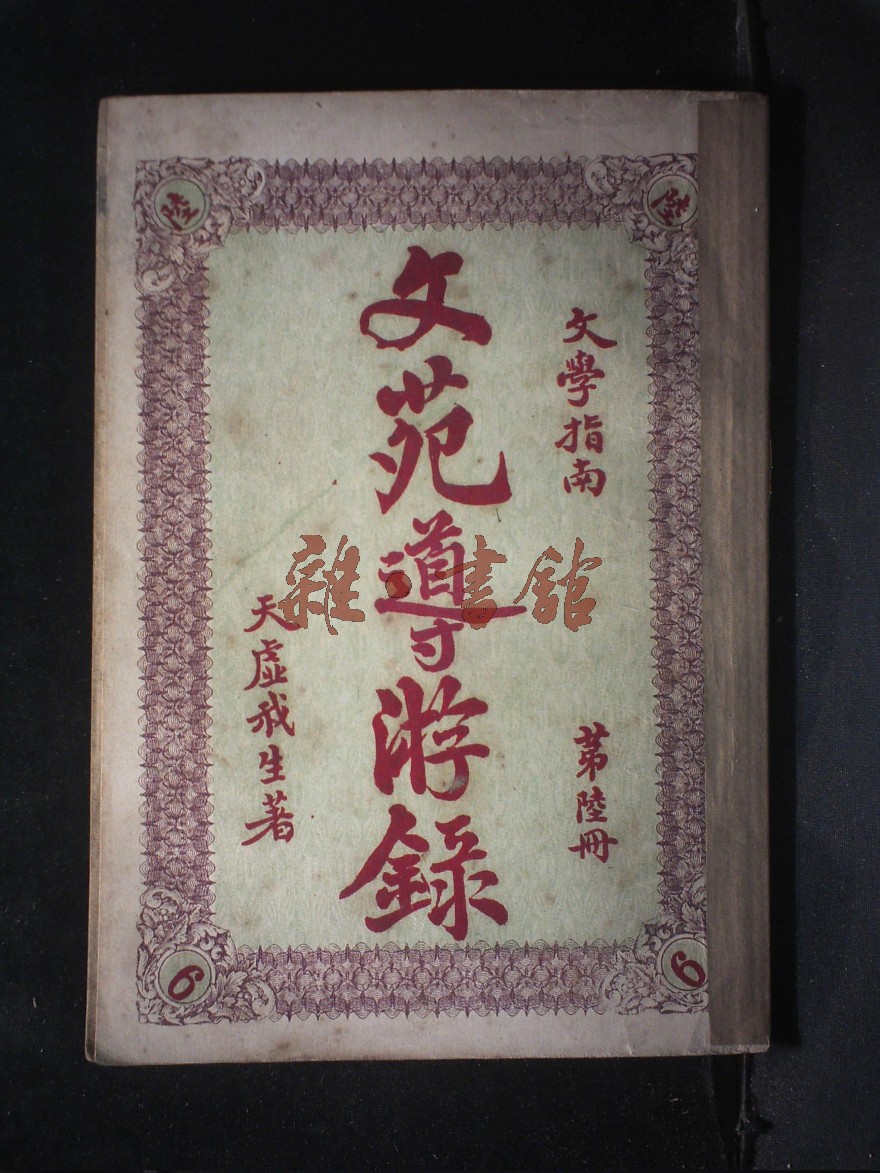 陸
陸
文學指南
第陸冊
文苑導游錄
天虛我生著
雜·書館
6
6